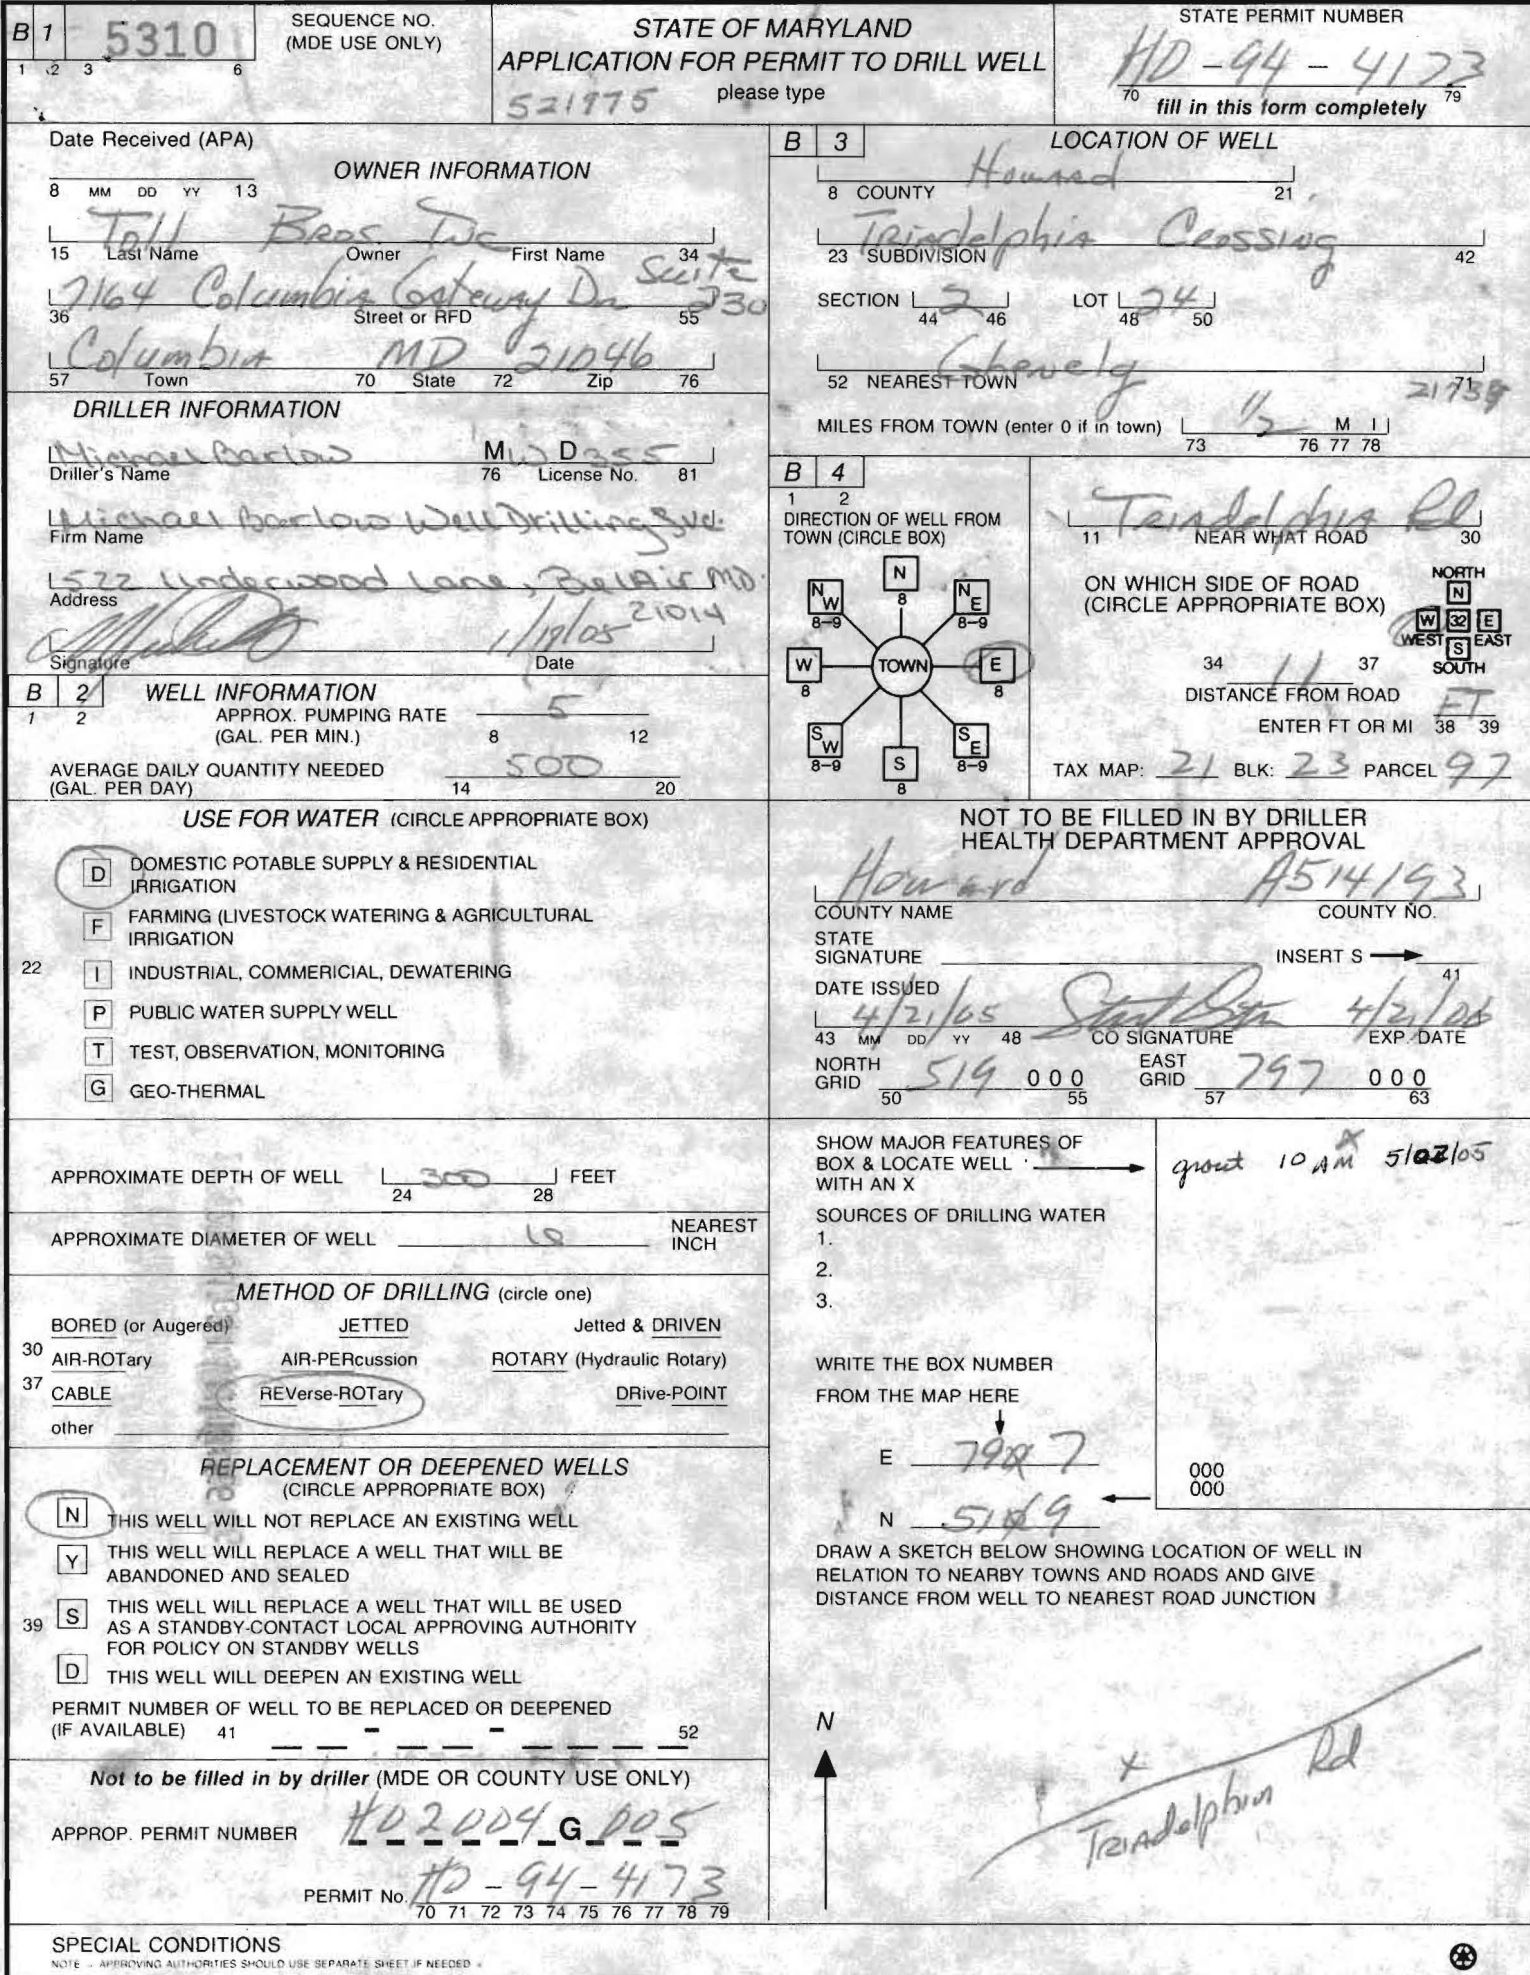 B 1 5310
1 2 3 6
SEQUENCE NO.
(MDE USE ONLY)
STATE OF MARYLAND
APPLICATION FOR PERMIT TO DRILL WELL
521975 please type
STATE PERMIT NUMBER
HD-94-4173
70 79
fill in this form completely
Date Received (APA)
8 MM DD YY 13
OWNER INFORMATION
Toll Bros Inc
15 Last Name Owner First Name 34
7164 Columbia Gateway Dr Suite 230
36 Street or RFD 55
Columbia MD 21046
57 Town 70 State 72 Zip 76
DRILLER INFORMATION
Barlow M W D 355
Driller's Name 76 License No. 81
Michael Barlow Well Drilling Svc.
Firm Name
522 Underwood Lane, Bel Air MD.
Address
21014
1/19/05
Signature Date
B 2 WELL INFORMATION
1 2
APPROX. PUMPING RATE 5
(GAL. PER MIN.) 8 12
AVERAGE DAILY QUANTITY NEEDED 500
(GAL. PER DAY) 14 20
USE FOR WATER (CIRCLE APPROPRIATE BOX)
D DOMESTIC POTABLE SUPPLY & RESIDENTIAL
IRRIGATION
F FARMING (LIVESTOCK WATERING & AGRICULTURAL
IRRIGATION
22 I INDUSTRIAL, COMMERICIAL, DEWATERING
P PUBLIC WATER SUPPLY WELL
T TEST, OBSERVATION, MONITORING
G GEO-THERMAL
APPROXIMATE DEPTH OF WELL 300 FEET
24 28
APPROXIMATE DIAMETER OF WELL NEAREST
INCH
METHOD OF DRILLING (circle one)
BORED (or Augered) JETTED Jetted & DRIVEN
30 AIR-ROTary AIR-PERcussion ROTARY (Hydraulic Rotary)
37 CABLE REVerse-ROTary DRive-POINT
other
REPLACEMENT OR DEEPENED WELLS
(CIRCLE APPROPRIATE BOX)
N THIS WELL WILL NOT REPLACE AN EXISTING WELL
Y THIS WELL WILL REPLACE A WELL THAT WILL BE
ABANDONED AND SEALED
39 S THIS WELL WILL REPLACE A WELL THAT WILL BE USED
AS A STANDBY-CONTACT LOCAL APPROVING AUTHORITY
FOR POLICY ON STANDBY WELLS
D THIS WELL WILL DEEPEN AN EXISTING WELL
PERMIT NUMBER OF WELL TO BE REPLACED OR DEEPENED
(IF AVAILABLE) 41 - - 52
Not to be filled in by driller (MDE OR COUNTY USE ONLY)
APPROP. PERMIT NUMBER HD2004 G 005
PERMIT No. HD-94-4173
70 71 72 73 74 75 76 77 78 79
SPECIAL CONDITIONS
NOTE - APPROVING AUTHORITIES SHOULD USE SEPARATE SHEET IF NEEDED
B 3 LOCATION OF WELL
Howard
8 COUNTY 21
Triadelphia Crossing
23 SUBDIVISION 42
SECTION 2 LOT 24
44 46 48 50
Glenelg
52 NEAREST TOWN 71
MILES FROM TOWN (enter 0 if in town) 1/2 M I
73 76 77 78
B 4
1 2
DIRECTION OF WELL FROM
TOWN (CIRCLE BOX)
N
8
NW NE
8-9 8-9
W TOWN E
8 8
SW SE
8-9 8-9
S
8
Triadelphia Rd
11 NEAR WHAT ROAD 30
ON WHICH SIDE OF ROAD
(CIRCLE APPROPRIATE BOX)
NORTH
N
W 32 E
WEST S EAST
SOUTH
34 11 37
DISTANCE FROM ROAD
ENTER FT OR MI FT
38 39
TAX MAP: 21 BLK: 23 PARCEL 97
NOT TO BE FILLED IN BY DRILLER
HEALTH DEPARTMENT APPROVAL
Howard A514193
COUNTY NAME COUNTY NO.
STATE
SIGNATURE INSERT S
41
DATE ISSUED
4/21/05 4/21/06
43 MM DD YY 48 CO SIGNATURE EXP. DATE
NORTH
GRID 519 000
50 55
EAST
GRID 797 000
57 63
SHOW MAJOR FEATURES OF
BOX & LOCATE WELL
WITH AN X
grout 10 AM 5/02/05
X
SOURCES OF DRILLING WATER
1.
2.
3.
WRITE THE BOX NUMBER
FROM THE MAP HERE
E 797
N 519
000
000
DRAW A SKETCH BELOW SHOWING LOCATION OF WELL IN
RELATION TO NEARBY TOWNS AND ROADS AND GIVE
DISTANCE FROM WELL TO NEAREST ROAD JUNCTION
N
X
Triadelphia Rd